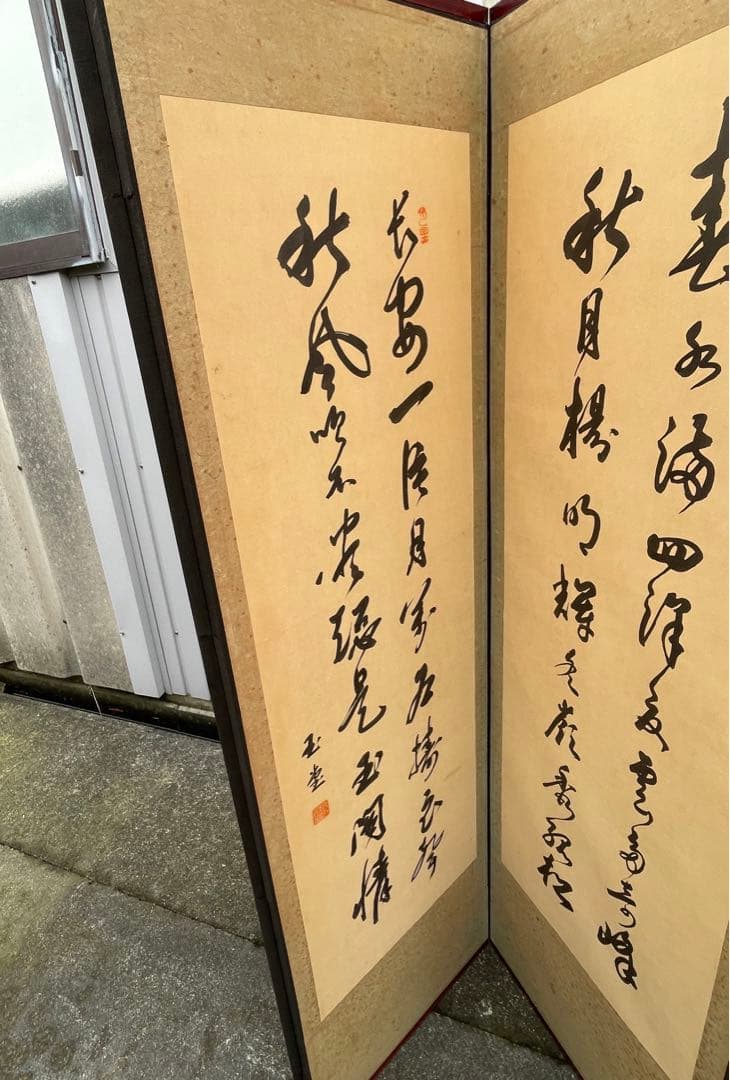 春水満四澤夏雲多奇峰
秋月揚明輝冬嶺秀孤松
长安一片月萬戸擣衣聲
秋風吹不盡總是玉関情
玉堂